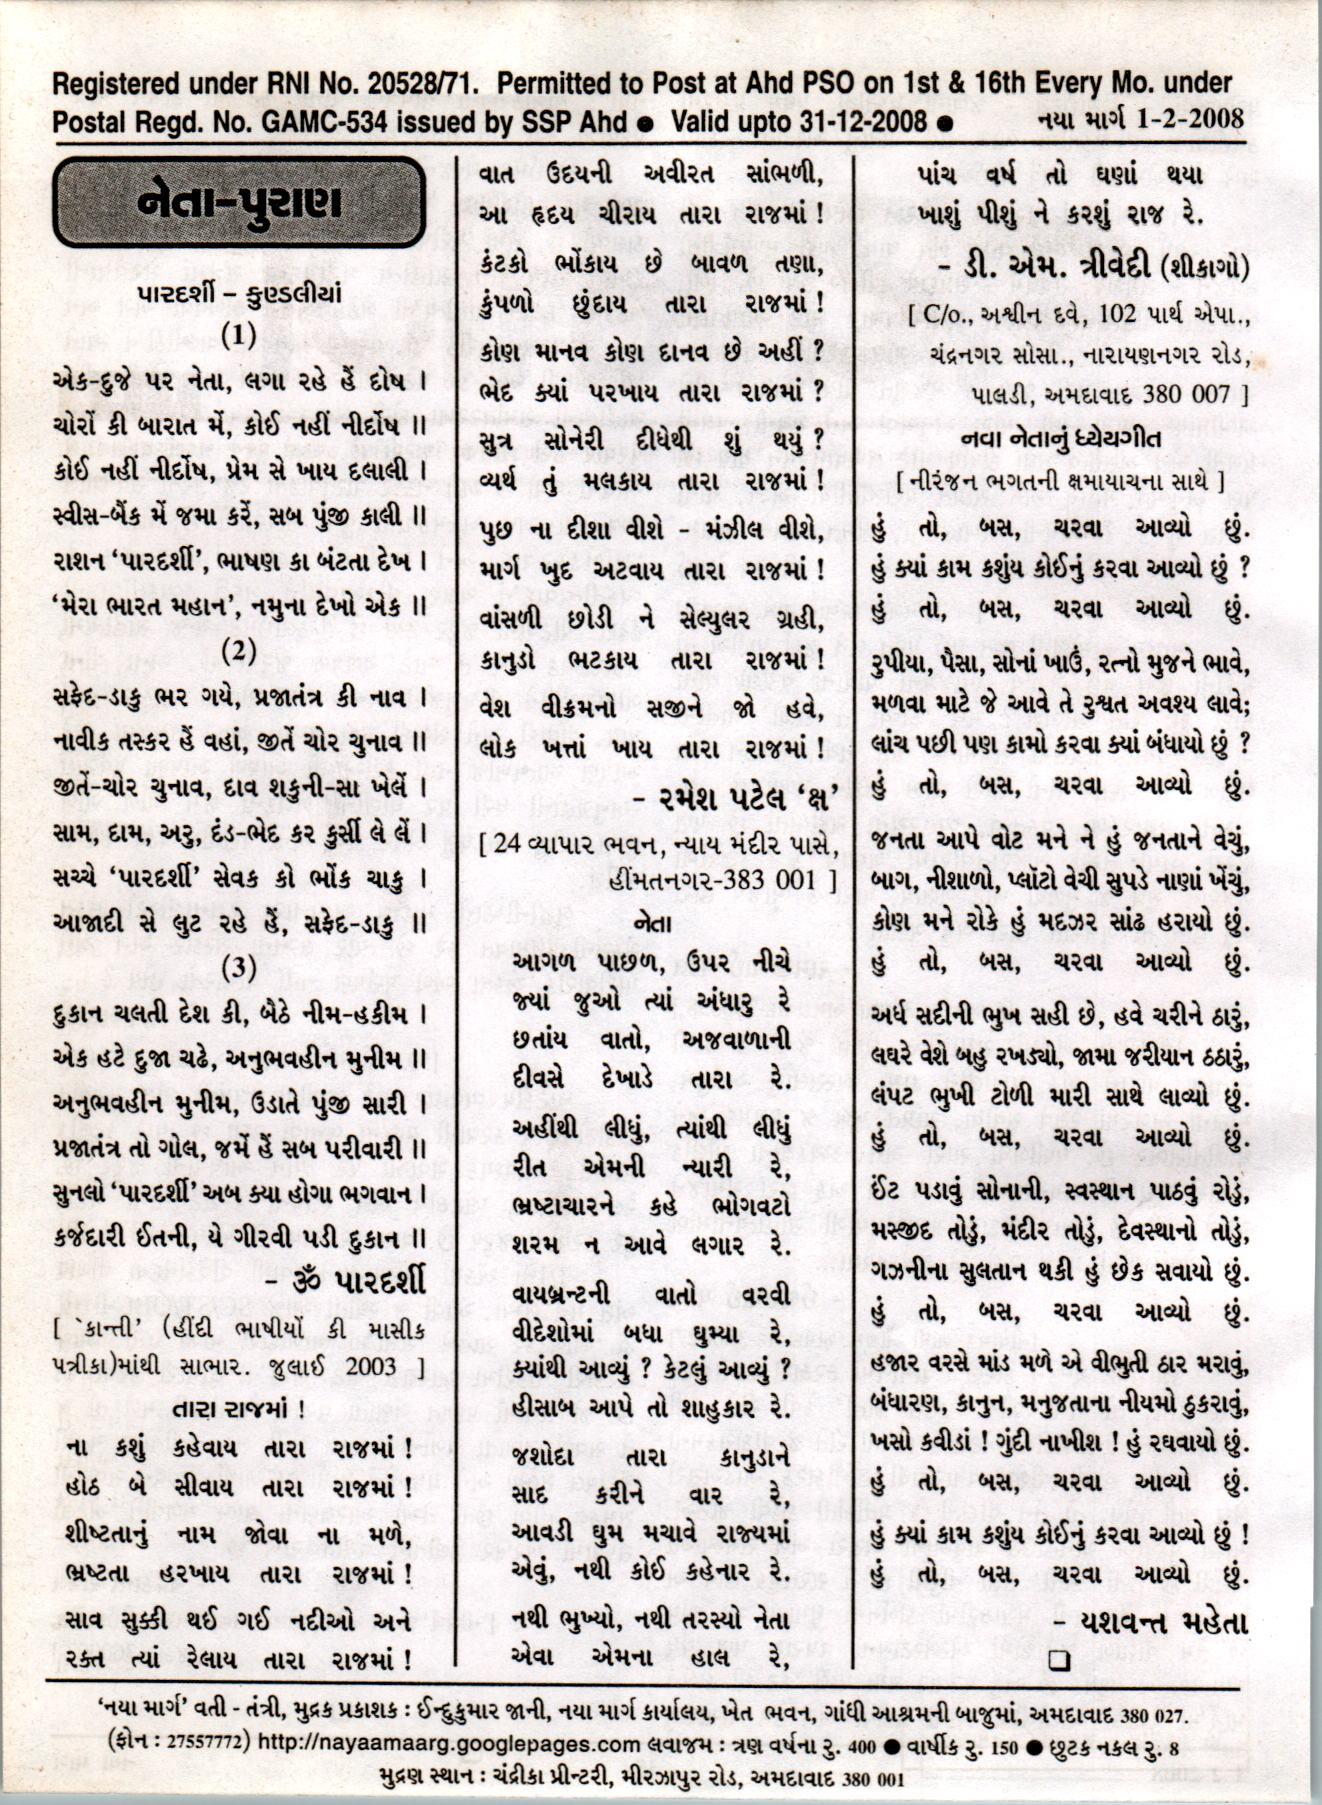 Registered under RNI No. 20528/71. Permitted to Post at Ahd PSO on 1st & 16th Every Mo. under
Postal Regd. No. GAMC-534 issued by SSP Ahd ● Valid upto 31-12-2008 ● નયા માર્ગ 1-2-2008
નેતા-પુરાણ
પારદર્શી – કુણ્ડલીયાં
(1)
એક-દુજે પર નેતા, લગા રહે હેં દોષ ।
ચોરોં કી બારાત મેં, કોઈ નહીં નીર્દોષ ॥
કોઈ નહીં નીર્દોષ, પ્રેમ સે ખાય દલાલી ।
સ્વીસ-બેંક મેં જમા કરેં, સબ પુંજી કાલી ॥
રાશન ‘પારદર્શી’, ભાષણ કા બંટતા દેખ ।
‘મેરા ભારત મહાન’, નમુના દેખો એક ॥
(2)
સફેદ-ડાકુ ભર ગયે, પ્રજાતંત્ર કી નાવ ।
નાવીક તસ્કર હેં વહાં, જીતેં ચોર ચુનાવ ॥
જીતેં-ચોર ચુનાવ, દાવ શકુની-સા ખેલેં ।
સામ, દામ, અરુ, દંડ-ભેદ કર કુર્સી લે લેં ।
સચ્ચે ‘પારદર્શી’ સેવક કો ભોંક ચાકુ ।
આજાદી સે લુટ રહે હેં, સફેદ-ડાકુ ॥
(3)
દુકાન ચલતી દેશ કી, બૈઠે નીમ-હકીમ ।
એક હટે દુજા ચઢે, અનુભવહીન મુનીમ ॥
અનુભવહીન મુનીમ, ઉડાતે પુંજી સારી ।
પ્રજાતંત્ર તો ગોલ, જમેં હેં સબ પરીવારી ॥
સુનલો ‘પારદર્શી’ અબ ક્યા હોગા ભગવાન ।
કર્જદારી ઈતની, યે ગીરવી પડી દુકાન ॥
- ૐ પારદર્શી
[ ‘કાન્તી’ (હીંદી ભાષીયોં કી માસીક
પત્રીકા)માંથી સાભાર. જુલાઈ 2003 ]
તારા રાજમાં !
ના કશું કહેવાય તારા રાજમાં !
હોઠ બે સીવાય તારા રાજમાં !
શીષ્ટતાનું નામ જોવા ના મળે,
ભ્રષ્ટતા હરખાય તારા રાજમાં !
સાવ સુક્કી થઈ ગઈ નદીઓ અને
રક્ત ત્યાં રેલાય તારા રાજમાં !
વાત ઉદયની અવીરત સાંભળી,
આ હૃદય ચીરાય તારા રાજમાં !
કંટકો ભોંકાય છે બાવળ તણા,
કુંપળો છુંદાય તારા રાજમાં !
કોણ માનવ કોણ દાનવ છે અહીં ?
ભેદ ક્યાં પરખાય તારા રાજમાં ?
સુત્ર સોનેરી દીધેથી શું થયુ ?
વ્યર્થ તું મલકાય તારા રાજમાં !
પુછ ના દીશા વીશે – મંઝીલ વીશે,
માર્ગ ખુદ અટવાય તારા રાજમાં !
વાંસળી છોડી ને સેલ્યુલર ગ્રહી,
કાનુડો ભટકાય તારા રાજમાં !
વેશ વીક્રમનો સજીને જો હવે,
લોક ખત્તાં ખાય તારા રાજમાં !
- રમેશ પટેલ ‘ક્ષ’
[ 24 વ્યાપાર ભવન, ન્યાય મંદીર પાસે,
હીંમતનગર-383 001 ]
નેતા
આગળ પાછળ, ઉપર નીચે
જ્યાં જુઓ ત્યાં અંધારુ રે
છતાંય વાતો, અજવાળાની
દીવસે દેખાડે તારા રે.
અહીંથી લીધું, ત્યાંથી લીધું
રીત એમની ન્યારી રે,
ભ્રષ્ટાચારને કહે ભોગવટો
શરમ ન આવે લગાર રે.
વાયબ્રન્ટની વાતો વરવી
વીદેશોમાં બધા ઘુમ્યા રે,
ક્યાંથી આવ્યું ? કેટલું આવ્યું ?
હીસાબ આપે તો શાહુકાર રે.
જશોદા તારા કાનુડાને
સાદ કરીને વાર રે,
આવડી ઘુમ મચાવે રાજ્યમાં
એવું, નથી કોઈ કહેનાર રે.
નથી ભુખ્યો, નથી તરસ્યો નેતા
એવા એમના હાલ રે,
પાંચ વર્ષ તો ઘણાં થયા
ખાશું પીશું ને કરશું રાજ રે.
- ડી. એમ. ત્રીવેદી (શીકાગો)
[ C/o., અશ્વીન દવે, 102 પાર્થ એપા.,
ચંદ્રનગર સોસા., નારાયણનગર રોડ,
પાલડી, અમદાવાદ 380 007 ]
નવા નેતાનું ધ્યેયગીત
[ નીરંજન ભગતની ક્ષમાયાચના સાથે ]
હું તો, બસ, ચરવા આવ્યો છું.
હું ક્યાં કામ કશુંય કોઈનું કરવા આવ્યો છું ?
હું તો, બસ, ચરવા આવ્યો છું.
રુપીયા, પૈસા, સોનાં ખાઉં, રત્નો મુજને ભાવે,
મળવા માટે જે આવે તે રુશ્વત અવશ્ય લાવે;
લાંચ પછી પણ કામો કરવા ક્યાં બંધાયો છું ?
હું તો, બસ, ચરવા આવ્યો છું.
જનતા આપે વોટ મને ને હું જનતાને વેચું,
બાગ, નીશાળો, પ્લૉટો વેચી સુપડે નાણાં ખેંચું,
કોણ મને રોકે હું મદઝર સાંઢ હરાયો છું.
હું તો, બસ, ચરવા આવ્યો છું.
અર્ધ સદીની ભુખ સહી છે, હવે ચરીને ઠારું,
લઘરે વેશે બહુ રખડ્યો, જામા જરીયાન ઠઠારું,
લંપટ ભુખી ટોળી મારી સાથે લાવ્યો છું.
હું તો, બસ, ચરવા આવ્યો છું.
ઈંટ પડાવું સોનાની, સ્વસ્થાન પાઠવું રોડું,
મસ્જીદ તોડું, મંદીર તોડું, દેવસ્થાનો તોડું,
ગઝનીના સુલતાન થકી હું છેક સવાયો છું.
હું તો, બસ, ચરવા આવ્યો છું.
હજાર વરસે માંડ મળે એ વીભુતી ઠાર મરાવું,
બંધારણ, કાનુન, મનુજતાના નીયમો ઠુકરાવું,
ખસો કવીડાં ! ગુંદી નાખીશ ! હું રઘવાયો છું.
હું તો, બસ, ચરવા આવ્યો છું.
હું ક્યાં કામ કશુંય કોઈનું કરવા આવ્યો છું !
હું તો, બસ, ચરવા આવ્યો છું.
- યશવન્ત મહેતા
‘નયા માર્ગ’ વતી - તંત્રી, મુદ્રક પ્રકાશક : ઈન્દુકુમાર જાની, નયા માર્ગ કાર્યાલય, ખેત ભવન, ગાંધી આશ્રમની બાજુમાં, અમદાવાદ 380 027.
(ફોન : 27557772) http://nayaamaarg.googlepages.com લવાજમ : ત્રણ વર્ષના રુ. 400 ● વાર્ષીક રુ. 150 ● છુટક નકલ રુ. 8
મુદ્રણ સ્થાન : ચંદ્રીકા પ્રીન્ટરી, મીરઝાપુર રોડ, અમદાવાદ 380 001